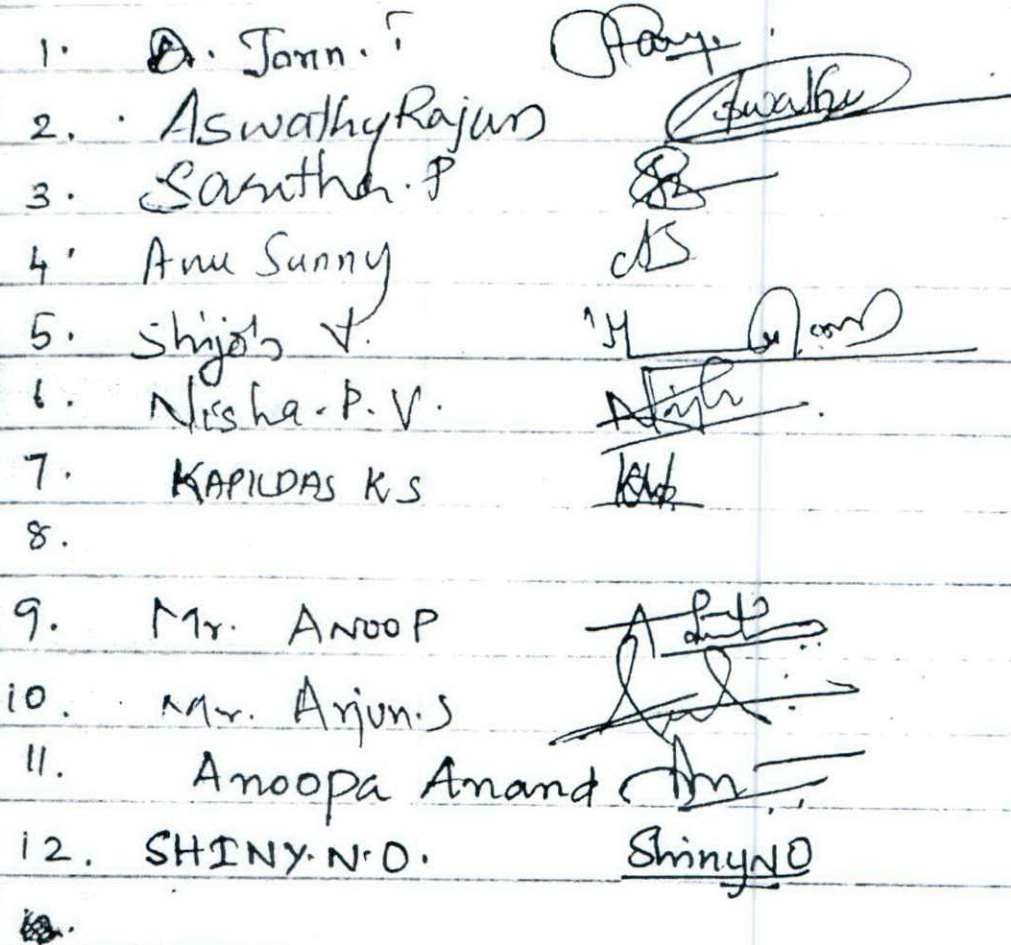 1. D. Jann. T
2. Aswathy Rajan Aswathy
3. Saritha. P
4. Anu Sunny AS
5. Shijo V.
6. Nisha. P. V.
7. KAPILDAS K S
8.
9. Mr. ANOOP
10. Mr. Arjun. S
11. Anoopa Anand An
12. SHINY. N. O. Shiny N O